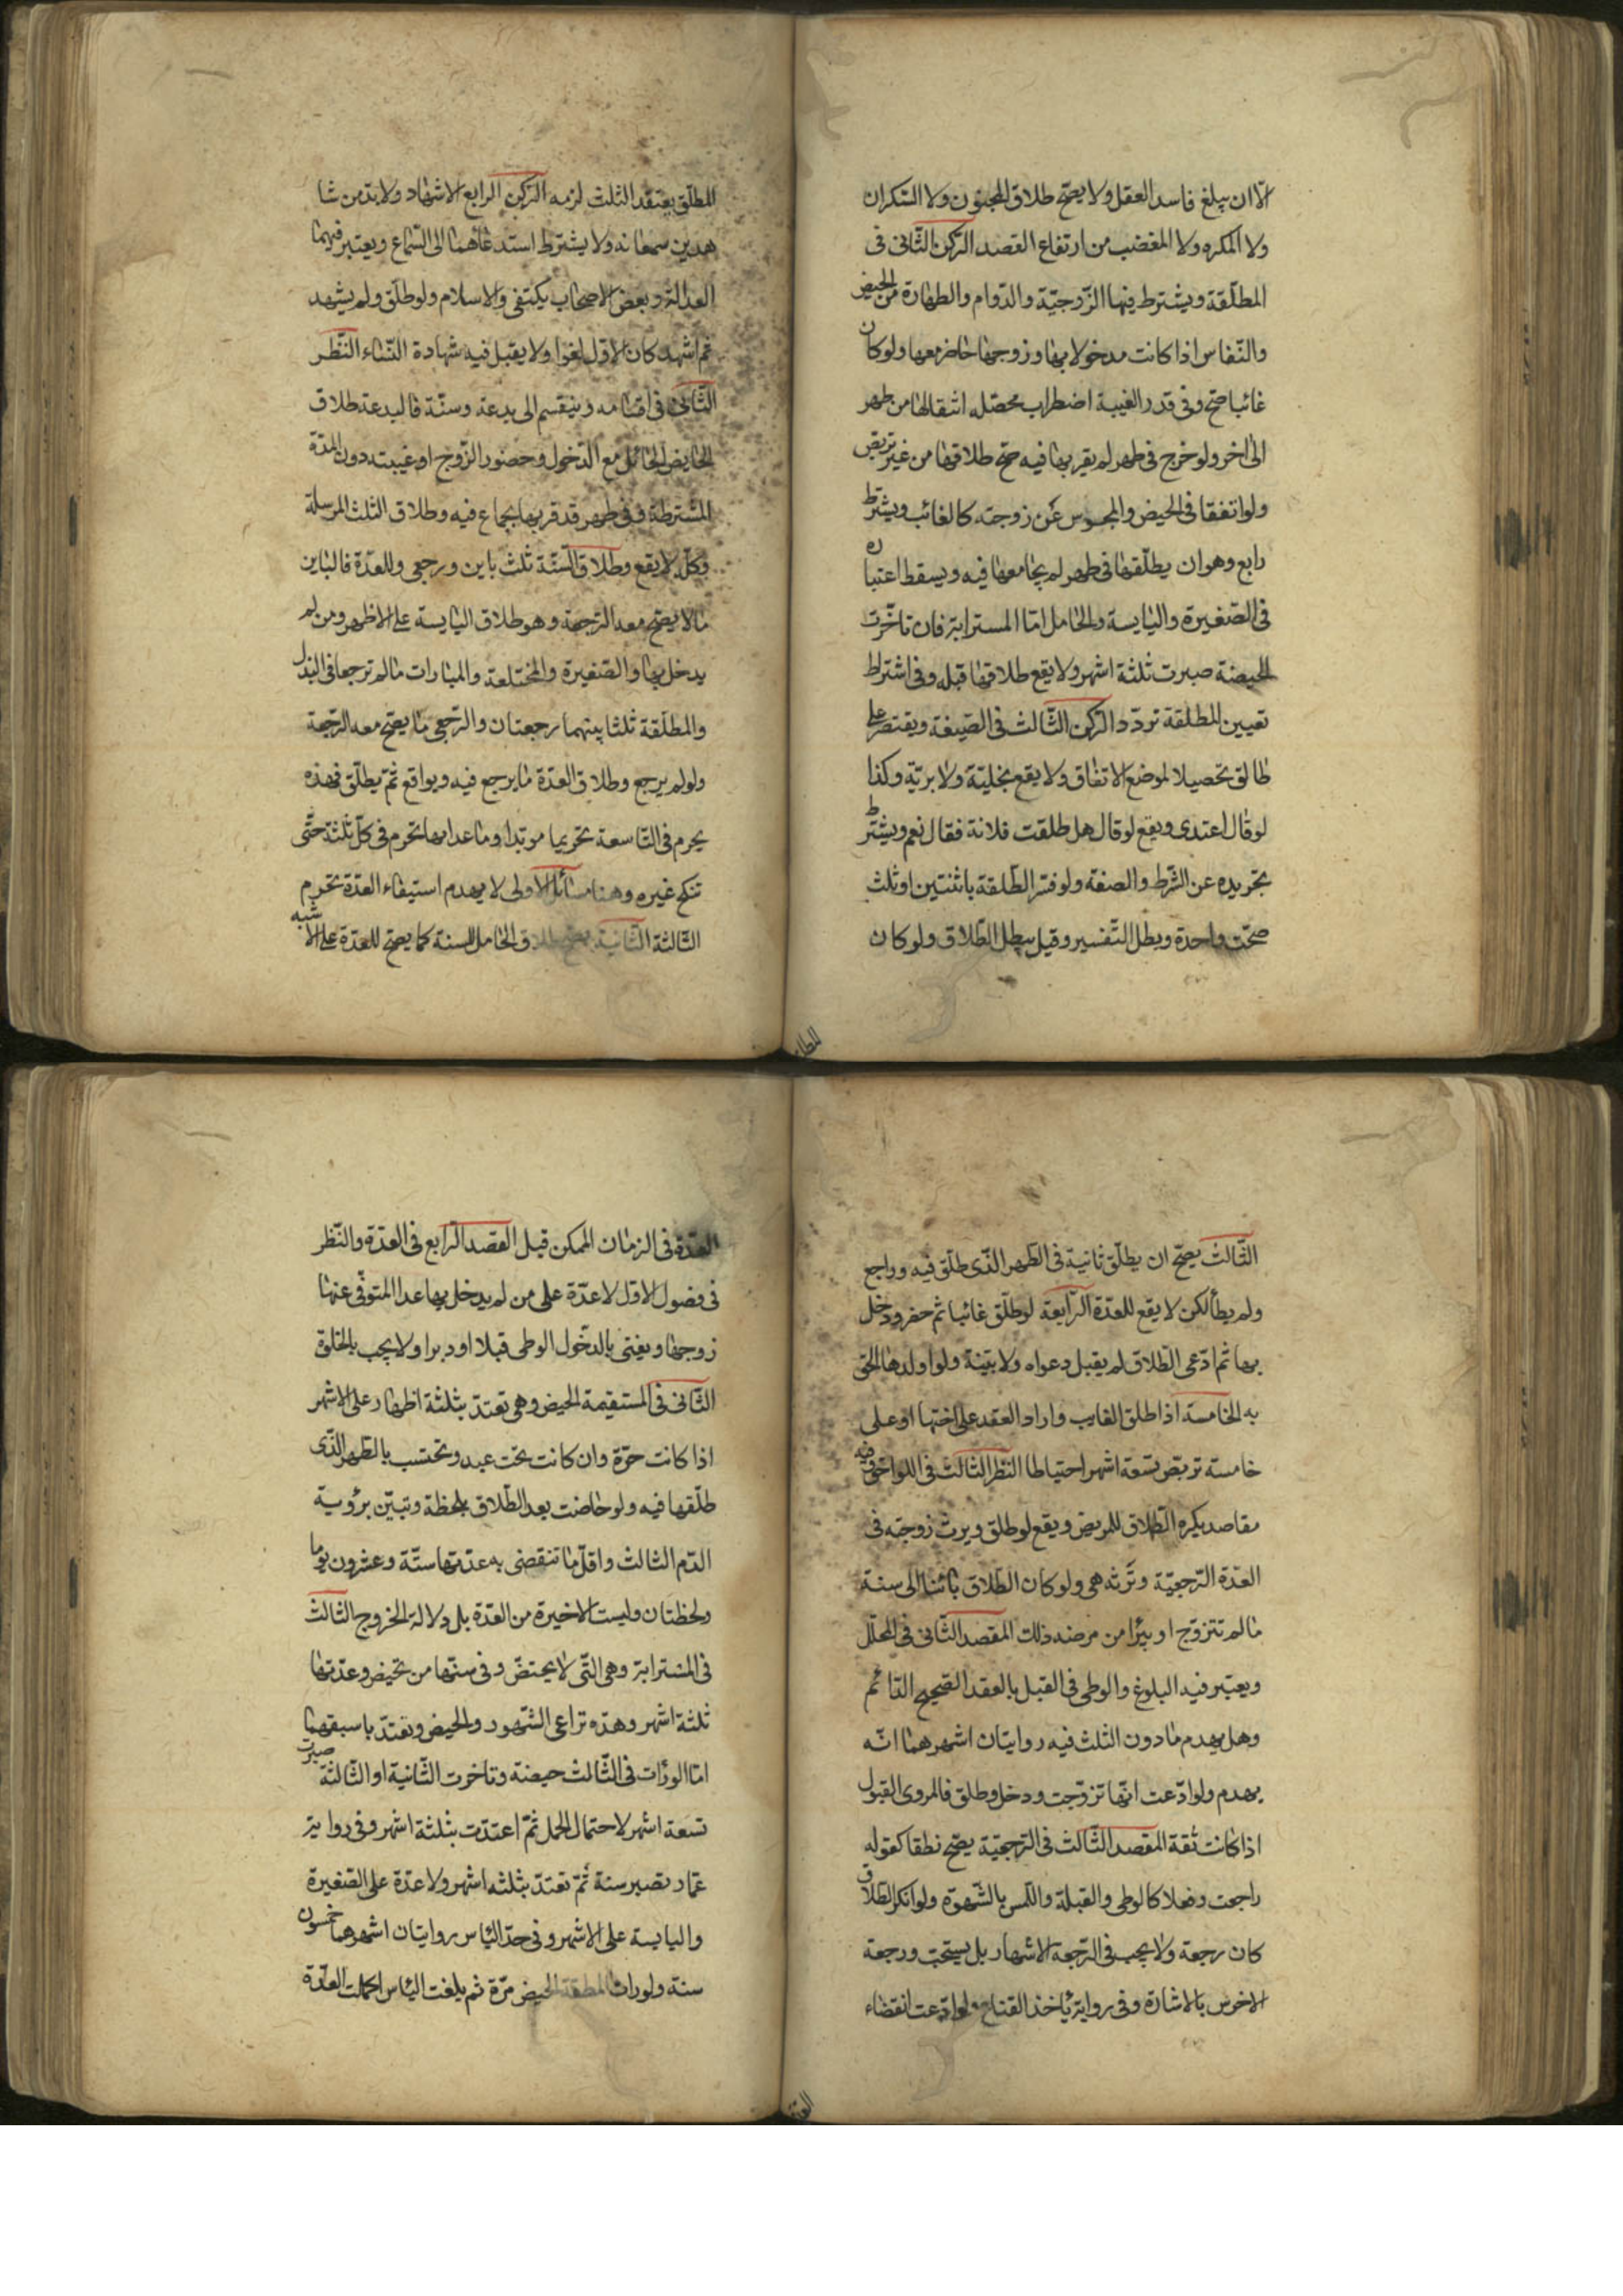 الّا ان يبلغ فاسد العقل ولا يصحّ طلاق المجنون ولا السّكران
ولا المكره ولا المغضب من ارتفاع القصد الرّكن الثّانى فى
المطلّقة ويشترط فيها الزّوجيّة والدّوام والطهارة من الحيض
والنّفاس اذا كانت مدخولا بها وزوجها حاضر معها ولو كان
غائبا صحّ وفى قدر الغيبة اضطراب محصّله انتقالها من طهر
الى اخر ولو خرج فى طهر لم يقربها فيه صحّ طلاقها من غير تربّص
ولو اتفقا فى الحيض والمحبوس عن زوجته كالغائب ويشترط
رابع وهو ان يطلّقها فى طهر لم يجامعها فيه ويسقط اعتباره
فى الصّغيرة واليايسة والحامل امّا المسترابة فان تاخّرت
الحيضة صبرت ثلثة اشهر ولا يقع طلاقها قبله وفى اشتراط
تعيين المطلقة تردّد الرّكن الثّالث فى الصّيغة ويقتصر على
طالق تحصيلا لموضع الاتّفاق ولا يقع بخليّة ولا بريّة وكذا
لو قال اعتدى ويقع لو قال هل طلقت فلانة فقال نعم ويشترط
تجريده عن الشّرط والصفة ولو فسّر الطّلقة باثنتين او ثلث
صحّت واحدة وبطل التّفسير وقيل يبطل الطّلاق ولو كان
المطلّق يعتقد الثلث لزمه الرّكن الرابع الاشهاد ولا بدّ من شا
هدين يسمعانه ولا يشترط استدعاؤهما الى السّماع ويعتبر فيهما
العدالة وبعض الاصحاب يكتفى والاسلام ولو طلّق ولم يشهد
ثم اشهد كان الاوّل لغوا ولا يقبل فيه شهادة النّساء النّظر
الثّانى فى اقسامه وينقسم الى بدعة وسنّة فالبدعة طلاق
الحايض الحائل مع الدّخول وحضور الزّوج او غيبته دون المدّة
المشترطة وفى طهر قد قربها بجماع فيه وطلاق الثلث المرسلة
وكلّه لا يقع وطلاق السّنّة ثلث باين ورجعى وللعدّة فالباين
ما لا يصحّ معه الرّجعة وهو طلاق اليايسة على الاظهر ومن لم
يدخل بها والصّغيرة والمختلعة والمبارات ما لم ترجعا فى البذل
والمطلّقة ثلثا بينهما رجعتان والرّجعى ما يصحّ معه الرّجعة
ولو لم يرجع وطلاق العدّة ما يرجع فيه ويواقع ثمّ يطلّق فهذه
يحرم فى التّاسعة تحريما مؤبّدا وما عداها تحرم فى كلّ ثلثة حتّى
تنكح غيره وهنا مسائل الاولى لا يهدم استيفاء العدّة تحريم
الثّالثة الثّانية يصحّ طلاق الحامل للسنة كما يصحّ للعدّة على الاشبه
المطلق
الثّالث يصحّ ان يطلّق ثانية فى الطّهر الّذى طلّق فيه وراجع
ولم يطأ لكن لا يقع للعدّة الرّابعة لو طلّق غائبا ثم حضر ودخل
بها ثم ادّعى الطّلاق لم يقبل دعواه ولا بيّنة ولو اولدها الحق
به الخامسة اذا طلق الغايب واراد العقد على اختها او على
خامسة تربّص تسعة اشهر احتياطا النّظر الثّالث فى اللواحق وفيه
مقاصد يكره الطّلاق للمريض ويقع لو طلق ويرث زوجته فى
العدّة الرّجعيّة وترثه هى ولو كان الطّلاق بائنا الى سنة
ما لم تتزوّج او يبرأ من مرضه ذلك المقصد الثّانى فى المحلّل
ويعتبر فيه البلوغ والوطى فى القبل بالعقد الصّحيح الدّائم
وهل يهدم ما دون الثلث فيه روايتان اشهرهما انّه
يهدم ولو ادّعت انّها تزوّجت ودخل وطلق فالمروى القبول
اذا كانت ثقة المقصد الثّالث فى الرّجعيّة يصحّ نطقا كقوله
راجعت وفعلا كالوطى والقبلة واللّمس بالشّهوة ولو انكر الطّلاق
كان رجعة ولا يجب فى الرّجعة الاشهاد بل يستحبّ ورجعة
الاخرس بالاشارة وفى رواية ياخذ القناع ولو ادّعت انقضاء
العدّة فى الزمان الممكن قبل المقصد الرّابع فى العدّة والنّظر
فى فصول الاوّل لا عدّة على من لم يدخل بها عدا المتوفّى عنها
زوجها ويعنى بالدّخول الوطى قبلا او دبرا ولا يجب بالخلوة
الثّانى فى المستقيمة الحيض وهى تعتدّ بثلثة اطهار على الاشهر
اذا كانت حرّة وان كانت تحت عبد وتحتسب بالطّهر الّذى
طلّقها فيه ولو حاضت بعد الطّلاق بلحظة وتبيّن برؤية
الدّم الثالث واقلّ ما تنقضى به عدّتها ستّة وعشرون يوما
ولحظتان وليست الاخيرة من العدّة بل دلالة الخروج الثالث
فى المسترابة وهى الّتى لا يحتض وفى سنّها من تحيض وعدّتها
ثلثة اشهر وهذه تراعى الشّهود والحيض وتعتدّ باسبقهما
امّا لو رأت فى الثّالث حيضة وتاخّرت الثّانية او الثّالثة صبرت
تسعة اشهر لاحتمال الحمل ثمّ اعتدّت بثلثة اشهر وفى رواية
عمّار تصبر سنة ثمّ تعتدّ بثلثه اشهر ولا عدّة على الصّغيرة
واليايسة على الاشهر وفى حدّ الياس روايتان اشهرهما خمسون
سنة ولو رات المطلقة الحيض مرّة ثم بلغت الياس اكملت العدّة